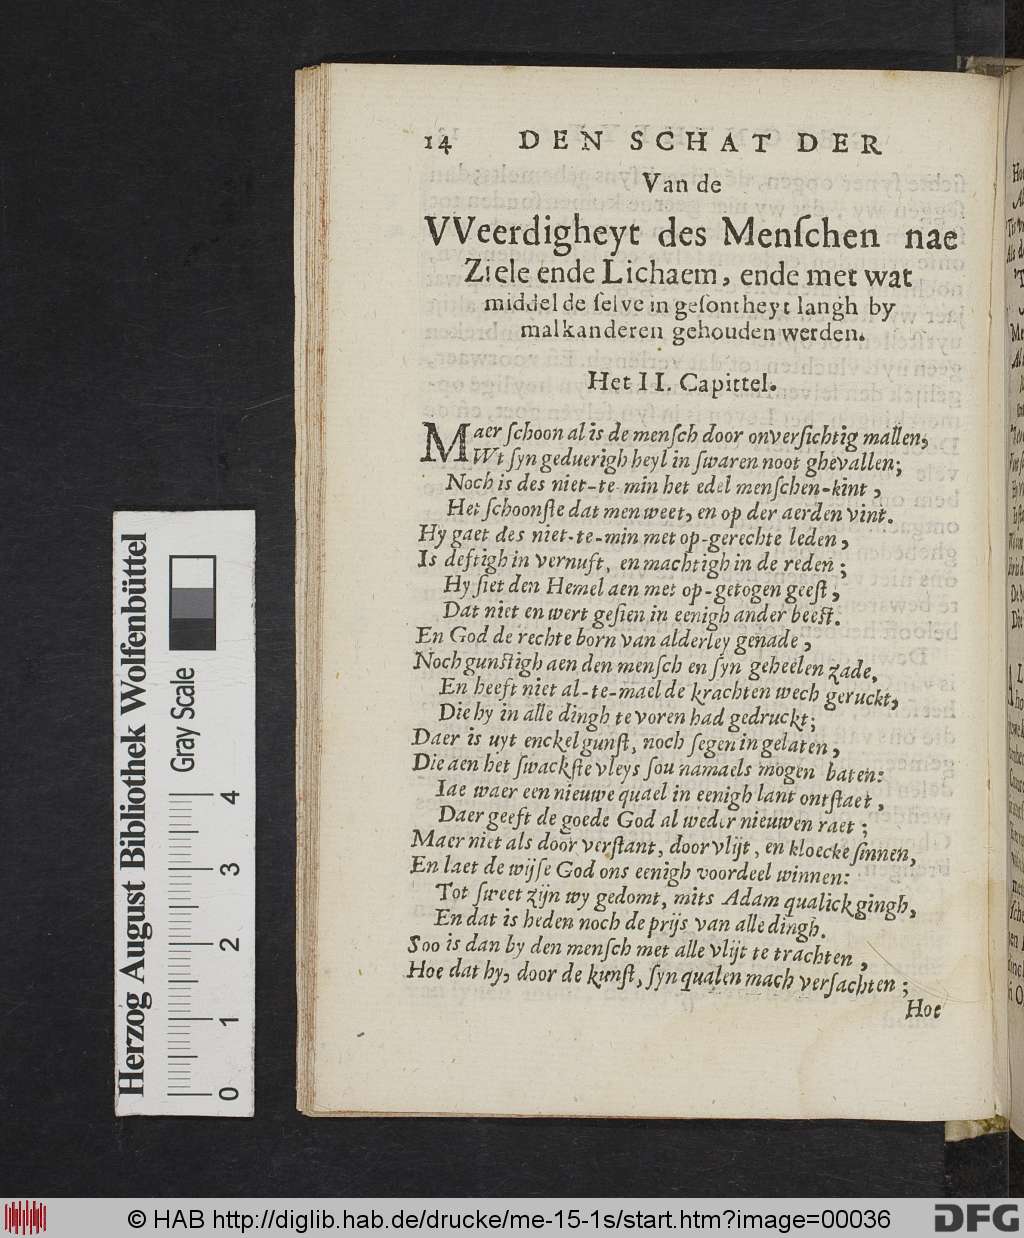 14 DEN SCHAT DER
Van de
VVeerdigheyt des Menſchen nae
Ziele ende Lichaem, ende met wat
middel de ſelve in geſontheyt langh by
malkanderen gehouden werden.
Het II. Capittel.
Maer ſchoon al is de menſch door onverſichtig mallen,
Wt ſyn geduerigh heyl in ſwaren noot ghevallen;
Noch is des niet-te-min het edel menſchen-kint,
Het ſchoonſte dat men weet, en op der aerden vint.
Hy gaet des niet-te-min met op-gerechte leden,
Is deftigh in vernuft, en machtigh in de reden;
Hy ſiet den Hemel aen met op-getogen geeſt,
Dat niet en wert geſien in eenigh ander beeſt.
En God de rechte born van alderley genade,
Noch gunſtigh aen den menſch en ſyn geheelen zade,
En heeft niet al-te-mael de krachten wech geruckt,
Die hy in alle dingh te voren had gedruckt;
Daer is uyt enckel gunſt, noch ſegen in gelaten,
Die aen het ſwackſte vleys ſou namaels mogen baten:
Iae waer een nieuwe quael in eenigh lant ontſtaet,
Daer geeft de goede God al weder nieuwen raet;
Maer niet als door verſtant, door vlijt, en kloecke ſinnen,
En laet de wijſe God ons eenigh voordeel winnen:
Tot ſweet zijn wy gedomt, mits Adam qualick gingh,
En dat is heden noch de prijs van alle dingh.
Soo is dan by den menſch met alle vlijt te trachten,
Hoe dat hy, door de kunſt, ſyn qualen mach verſachten;
Hoe
Herzog August Bibliothek Wolfenbüttel
Gray Scale
0 1 2 3 4
© HAB http://diglib.hab.de/drucke/me-15-1s/start.htm?image=00036
DFG